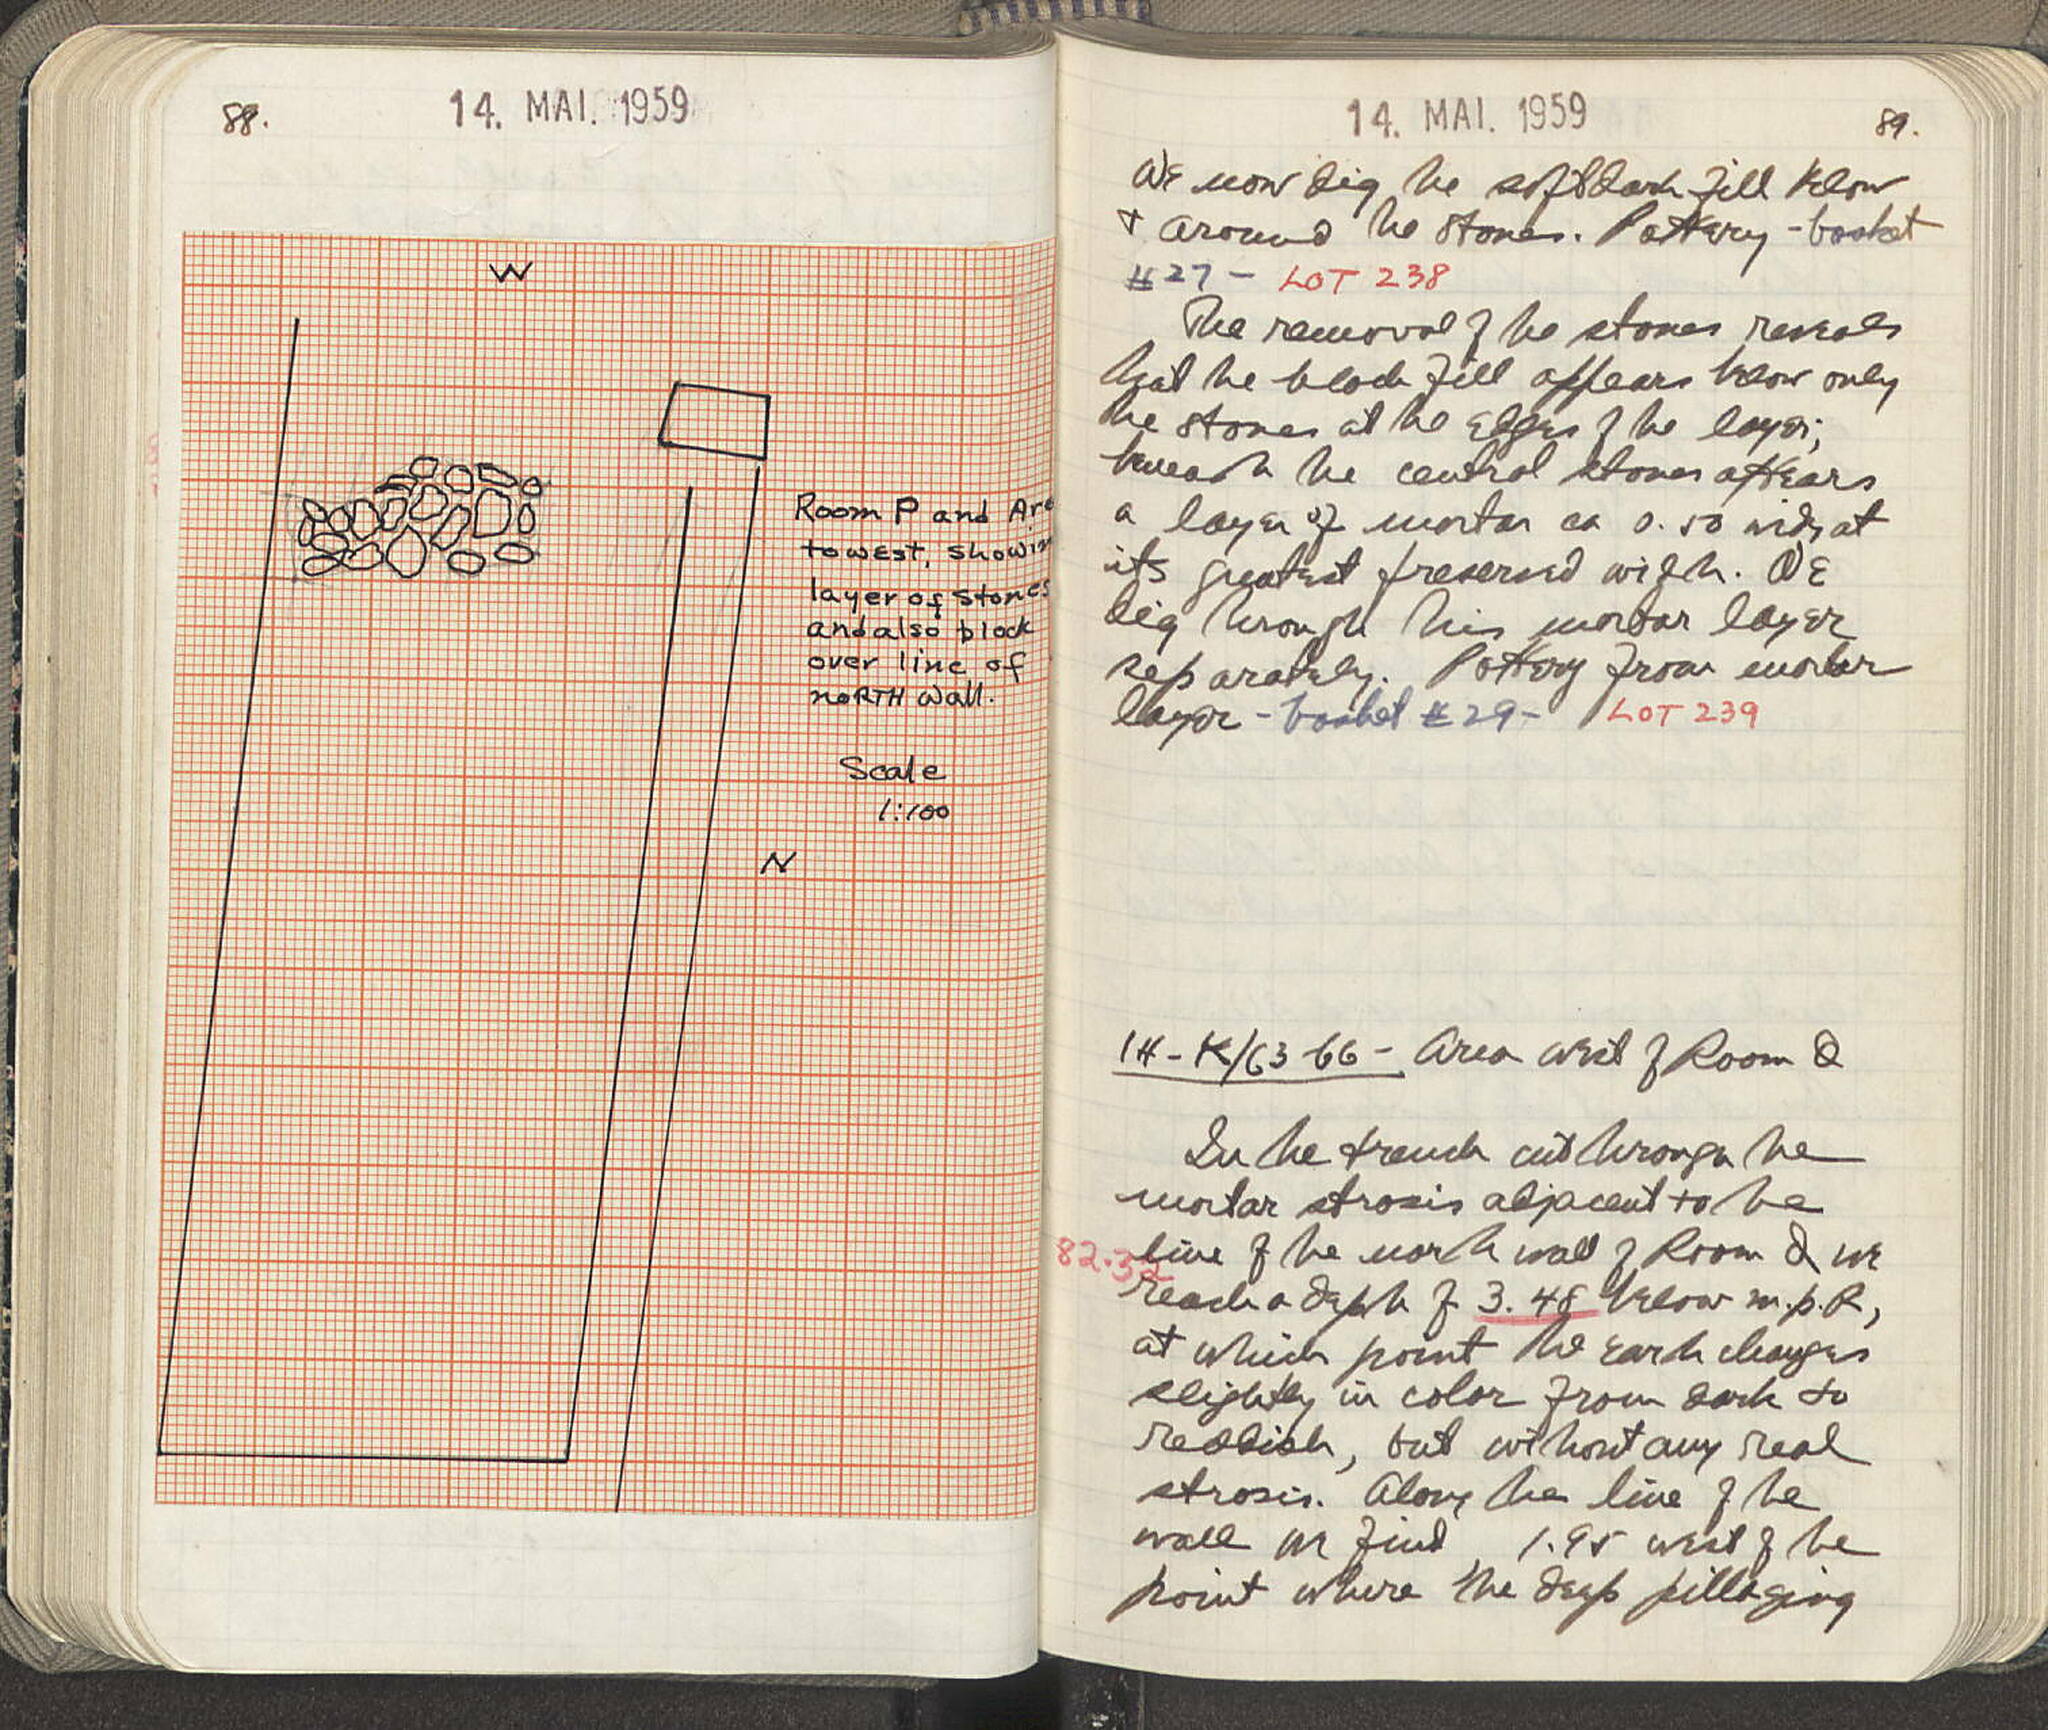 88.
14. MAI. 1959
W
Room P and Are
to west, showin
layer of stones
and also block
over line of
noRTH wall.
Scale
1:100
N
14. MAI. 1959
89.
We now dig the soft dark fill below
+ around the stones. Pottery - basket
#27 - LOT 238
The removal of the stones reveals
that the black fill appears below only
the stones at the edges of the layer;
beneath the central stones appears
a layer of mortar ca 0.50 wide at
its greatest preserved width. We
dig through this mortar layer
separately. Pottery from mortar
layer - basket #29 - LOT 239
14 - K/63-66 - Area west of Room Q
In the trench cut through the
mortar strosis adjacent to the
82.32 line of the north wall of Room Q we
reach a depth of 3.48 below m.p. R,
at which point the earth changes
slightly in color from dark to
reddish, but without any real
strosis. Along the line of the
wall we find, 1.95 west of the
point where the deep pillaging